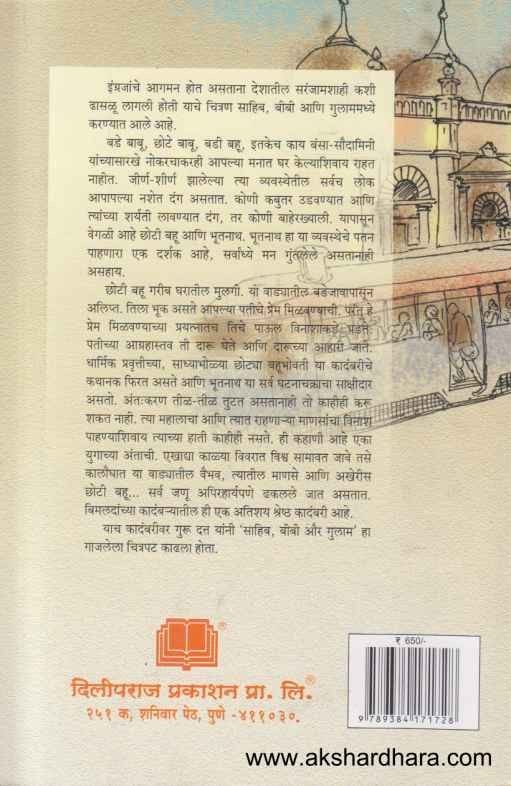 इंग्रजांचे आगमन होत असताना देशातील सरंजामशाही कशी
ढासळू लागली होती याचे चित्रण साहिब, बीबी आणि गुलाममध्ये
करण्यात आले आहे.
बडे बाबू, छोटे बाबू, बडी बहू, इतकेच काय बंसा-सौदामिनी
यांच्यासारखे नोकरचाकरही आपल्या मनात घर केल्याशिवाय राहत
नाहीत. जीर्ण-शीर्ण झालेल्या त्या व्यवस्थेतील सर्वच लोक
आपापल्या नशेत दंग असतात. कोणी कबुतर उडवण्यात आणि
त्यांच्या शर्यती लावण्यात दंग, तर कोणी बाहेरख्याली. यापासून
वेगळी आहे छोटी बहू आणि भूतनाथ. भूतनाथ हा या व्यवस्थेचे पतन
पाहणारा एक दर्शक आहे, सर्वांध्ये मन गुंतलेले असतानाही
असहाय.
छोटी बहू गरीब घरातील मुलगी. या वाड्यातील बडेजावापासून
अलिप्त. तिला भूक असते आपल्या पतीचे प्रेम मिळवण्याची. परंतु हे
प्रेम मिळवण्याच्या प्रयत्नातच तिचे पाऊल विनाशाकडे पडते.
पतीच्या आग्रहास्तव ती दारू घेते आणि दारूच्या आहारी जाते.
धार्मिक प्रवृत्तीच्या, साध्याभोळ्या छोट्या बहूभोवती या कादंबरीचे
कथानक फिरत असते आणि भूतनाथ या सर्व घटनाचक्राचा साक्षीदार
असतो. अंतःकरण तीळ-तीळ तुटत असतानाही तो काहीही करू
शकत नाही. त्या महालाचा आणि त्यात राहणाऱ्या माणसांचा विनाश
पाहण्याशिवाय त्याच्या हाती काहीही नसते. ही कहाणी आहे एका
युगाच्या अंताची. एखाद्या काळ्या विवरात विश्व सामावत जावे तसे
कालौघात या वाड्यातील वैभव, त्यातील माणसे आणि अखेरीस
छोटी बहू... सर्व जणू अपरिहार्यपणे ढकलले जात असतात.
बिमलदांच्या कादंबऱ्यातील ही एक अतिशय श्रेष्ठ कादंबरी आहे.
याच कादंबरीवर गुरू दत्त यांनी 'साहिब, बीबी और गुलाम' हा
गाजलेला चित्रपट काढला होता.
₹ 650/-
9 789384 171728
दिलीपराज प्रकाशन प्रा. लि.®
२५१ क, शनिवार पेठ, पुणे -४११०३०.
www.akshardhara.com